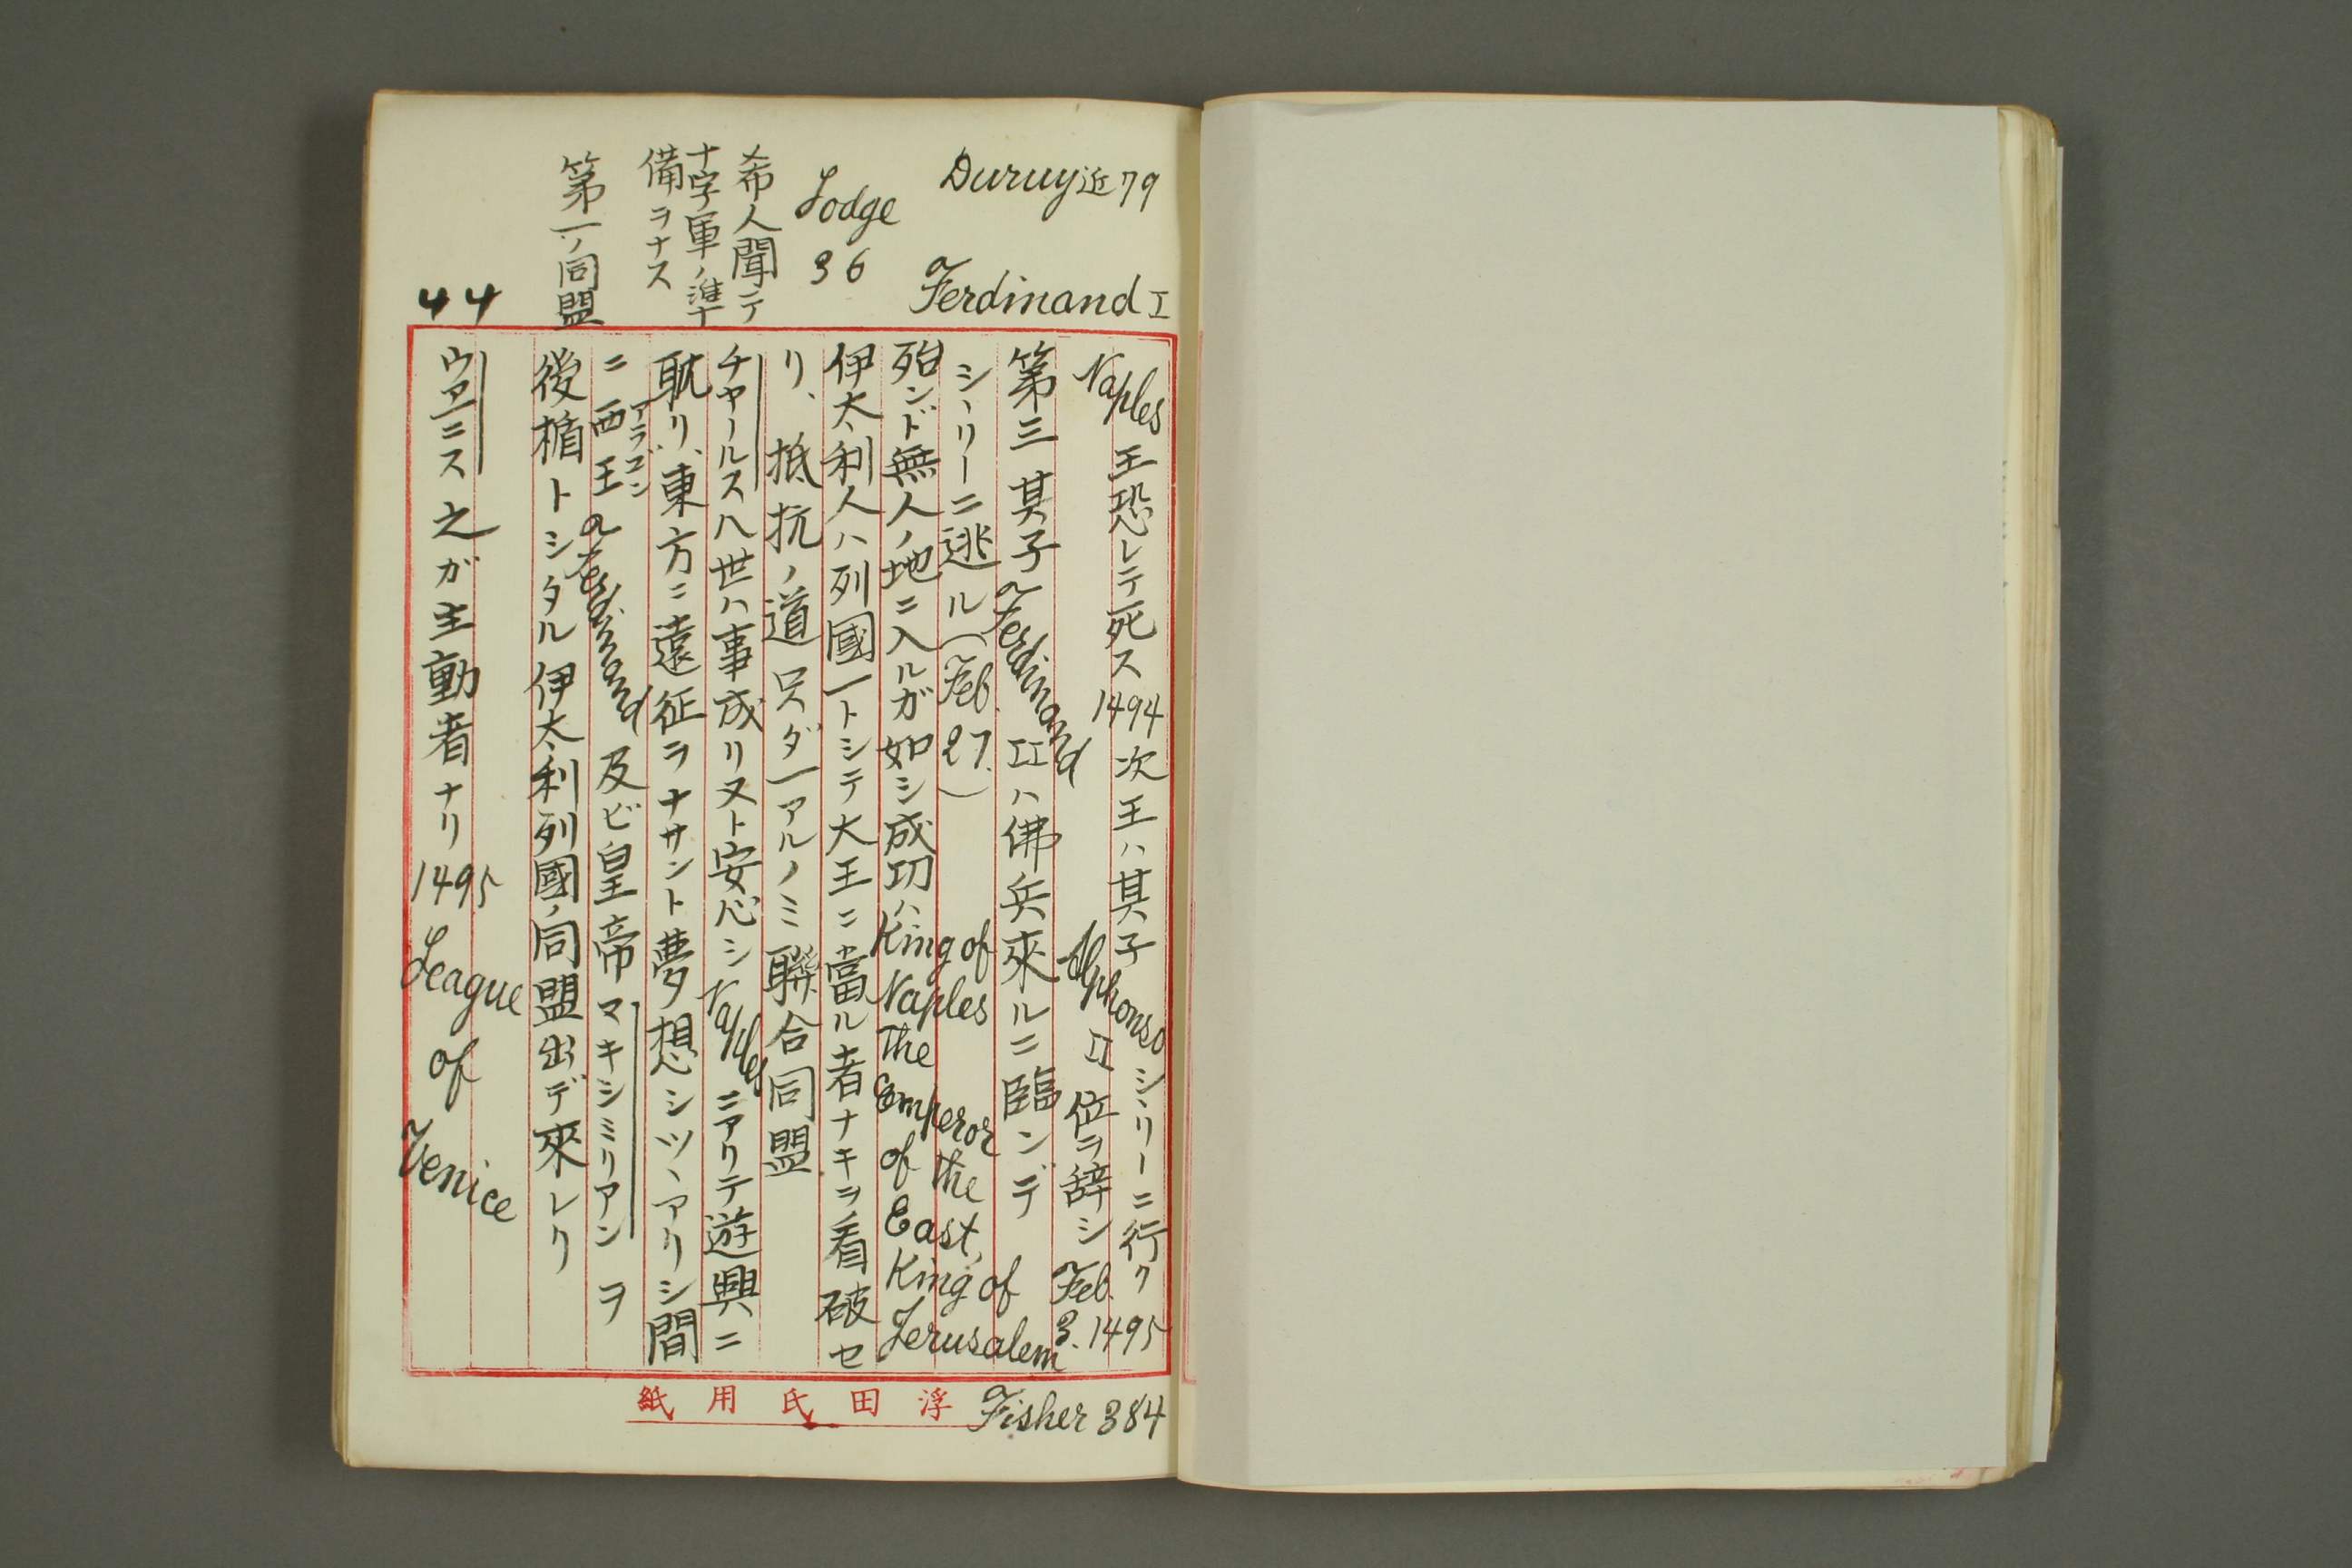 Duruy近79
Ferdinand I
Lodge
36
希人聞テ
十字軍ノ準
備ヲナス
第一ノ同盟
44
Naples王恐レテ死ス1494次王ハ其子Alphonso II
シヽリーニ行ク
位ヲ辞シFeb.3.1495
第三其子Ferdinand IIハ佛兵來ルニ臨ンデ
シヽリーニ逃ル(Feb.27.)
殆ンド無人ノ地ニ入ルガ如シ成功ハKing of Naples The Emperor of the East, King of Jerusalem
伊太利人ハ列國一トシテ大王ニ當ル者ナキヲ看破セ
リ、抵抗ノ道只ダ一アルノミ聯合同盟
チャールス八世ハ事成リヌト安心シNaplesニアリテ遊興ニ
耽リ、東方ニ遠征ヲナサント夢想シツヽアリシ間
アラゴン
ニ西王Ferdinand及ビ皇帝マキシミリアンヲ
後楯トシタル伊太利列國ノ同盟出デ來レリ
ウァニス之ガ主動者ナリ1495 League of Venice
Fisher 384
浮田氏用紙